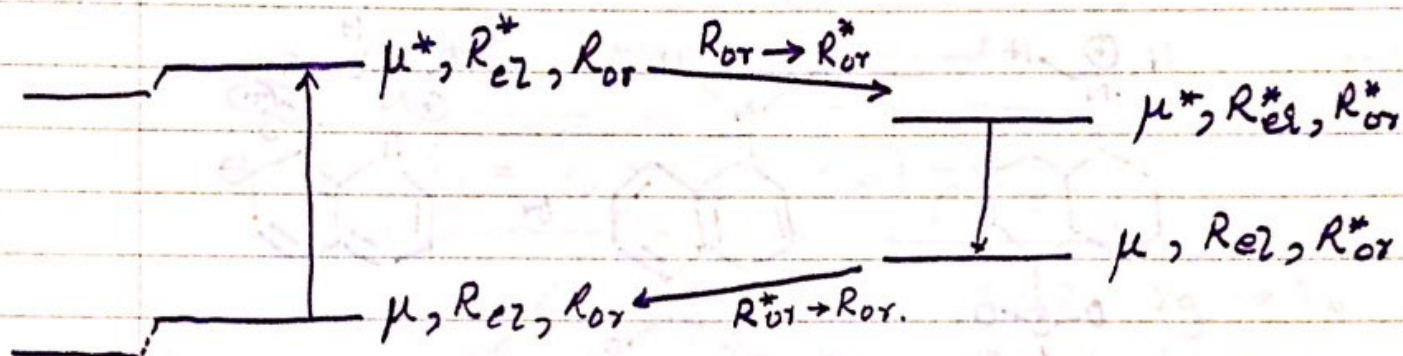 μ*, R*el, Ror Ror → R*or
μ*, R*el, R*or
μ, Rel, R*or
μ, Rel, Ror R*or → Ror.